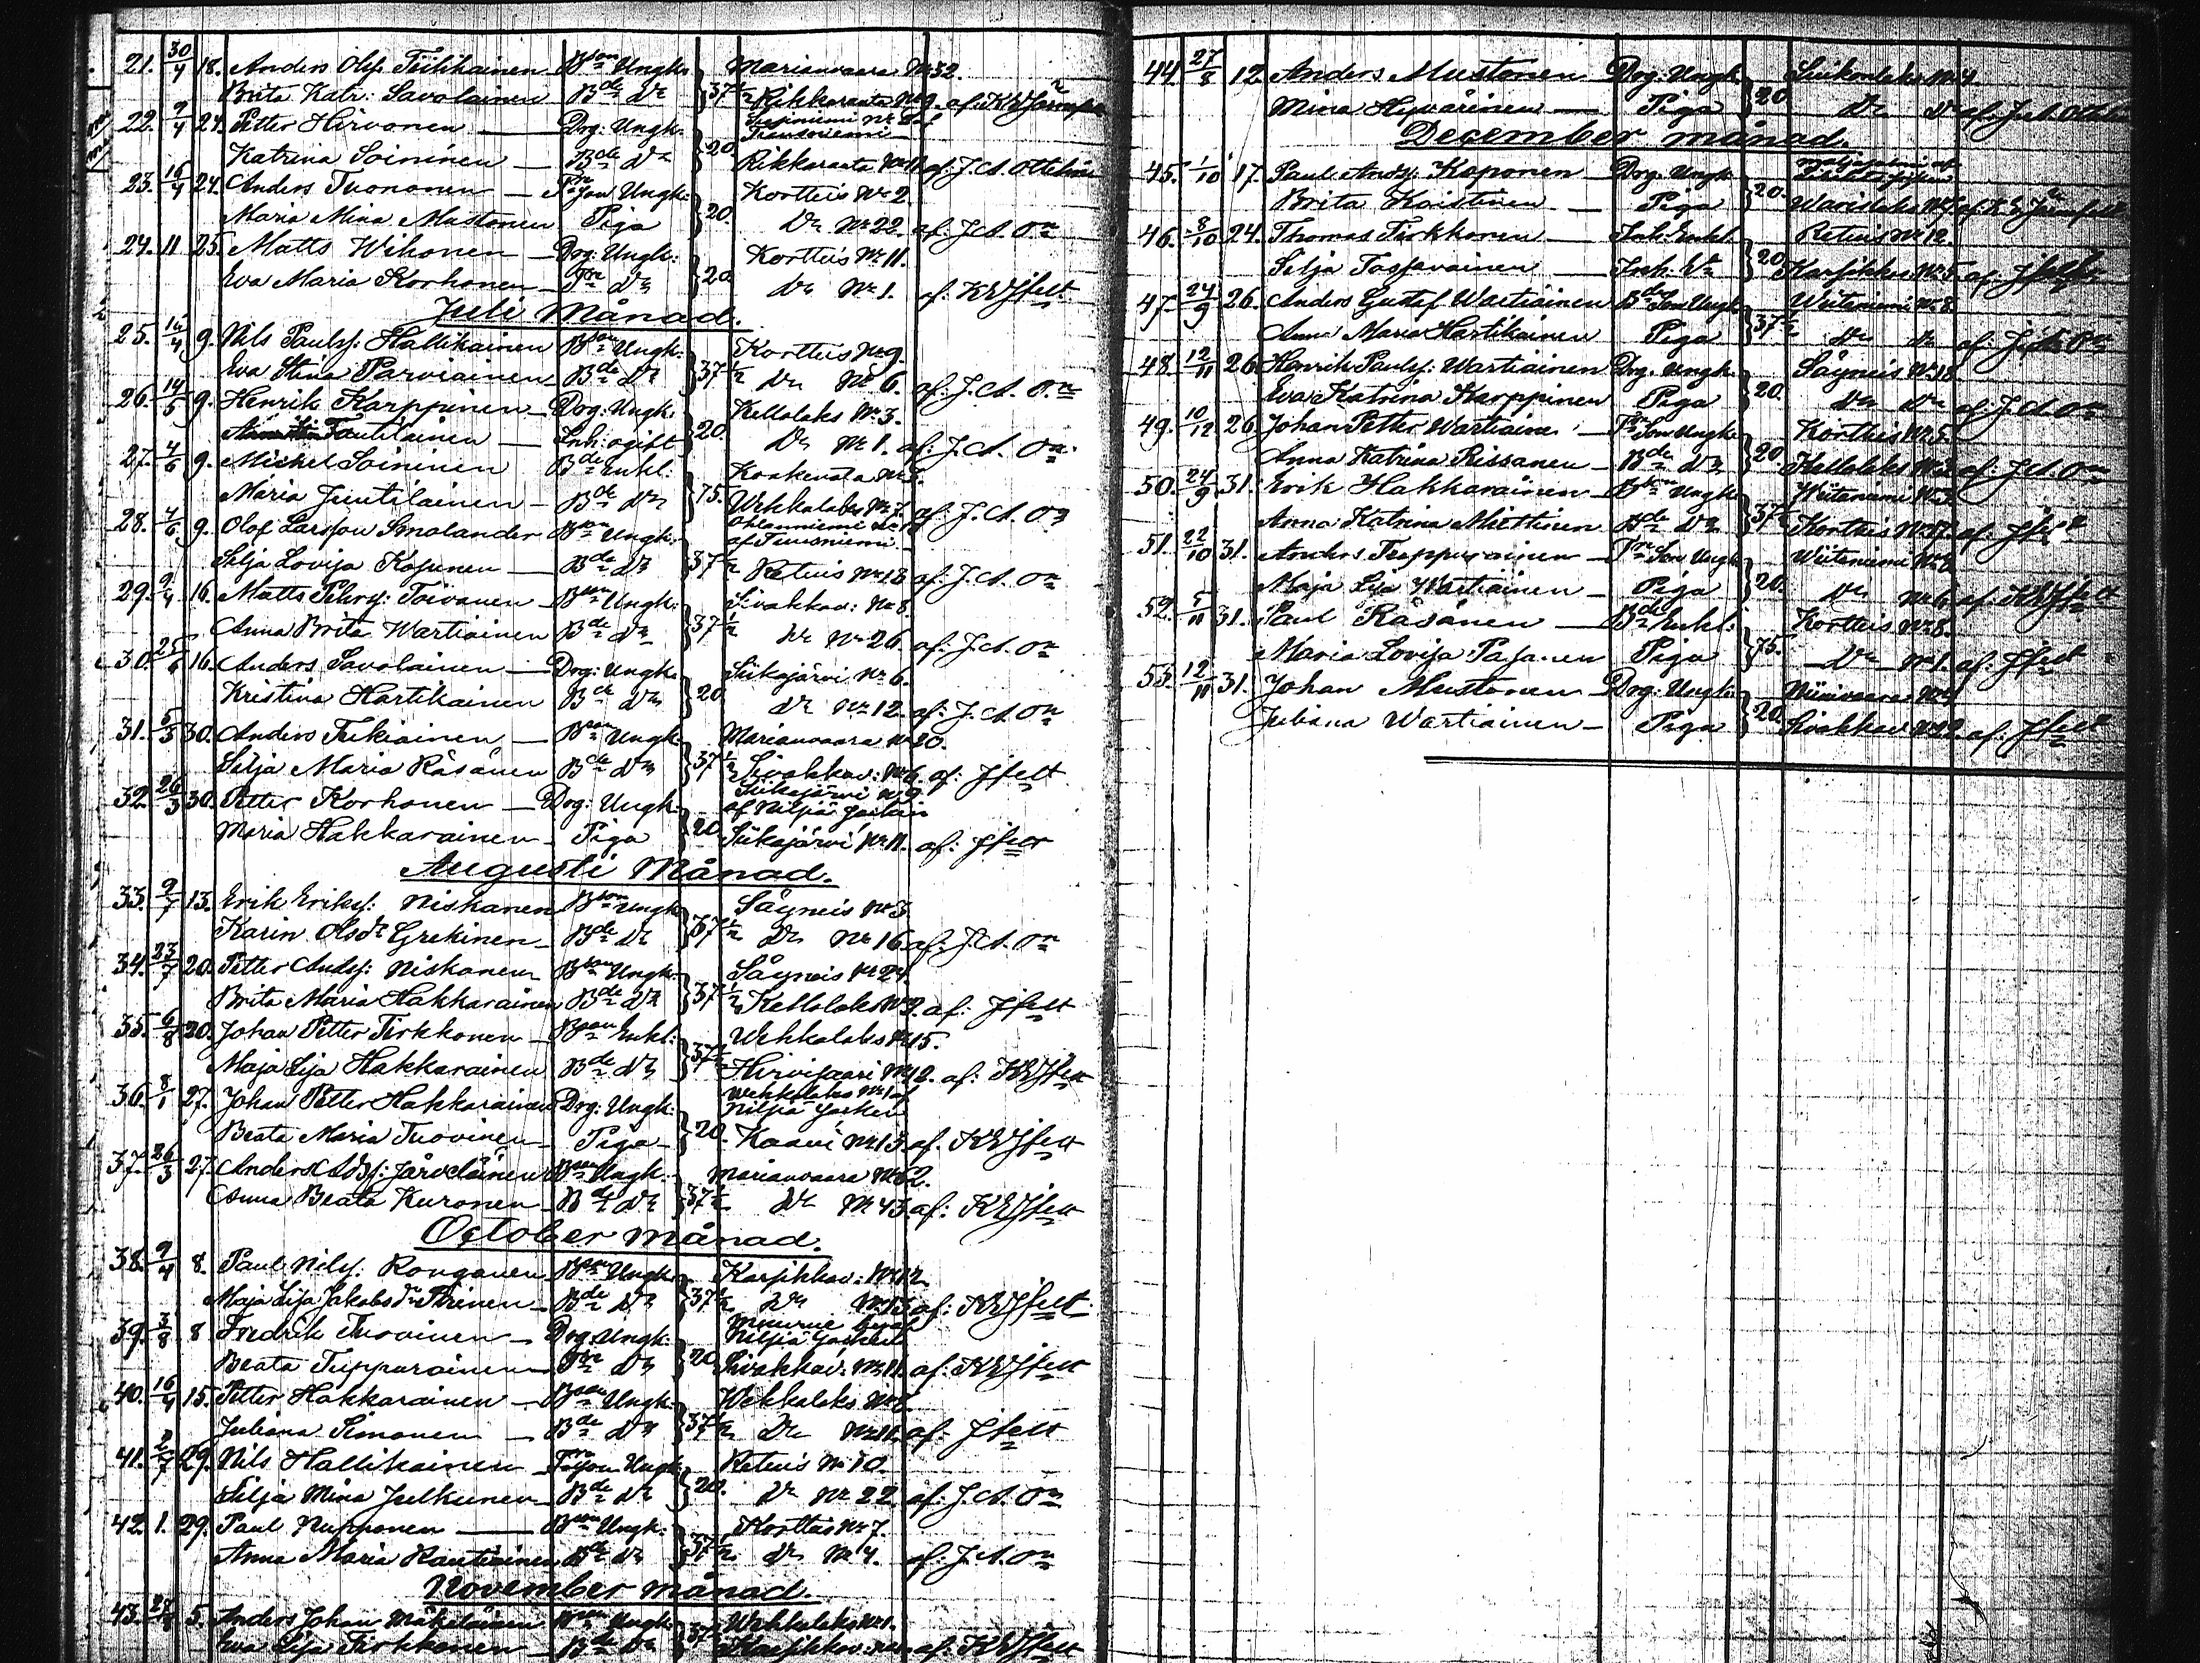 21. 30/4 18. Anders Olss. Tiilikainen Bson Ungk. Marianvaara No 32.
Brita Katr: Savolainen Bde Do 37 1/2 Rikkaranta No 9. af: KEJärnf
22. 9/4 24. Petter Hirvonen Drg: Ungk.
Katrina Soininen Bde Do 20. Rikkaranta No 11 af J. A. Ottelin
23. 16/4 24. Anders Tuononen Tson Ungk. Korttus No 2.
Maria Mina Mustonen Piga 20. Do No 22. af. J. A. On
24. 11 25. Matts Wihonen Drg: Ungk: Korttus No 11.
Eva Maria Korhonen Tr Do 20 Do No 1. af. KEJfelt
Juli Månad.
25. 16/4 9. Nils Paulss: Hallikainen Bson Ungk: Korttus No 9.
Eva Stina Parviainen Bde Do 37 1/2 Do No 6. af. J. A. On
26. 14/5 9. Henrik Karppinen Drg: Ungk: Kellolaks No 3.
Juutilainen Inh: ogift 20. Do No 1. af: J. A. On
27. 4/6 9. Michel Soininen Bde Enkl: No
Maria Juutilainen Bde Do 75. Wehkalaks No 7. af J. A. On
28. 4/6 9. Olof Larsson Smolander Bson Ungk: af Tuusniemi
Silja Lovisa Kosunen Bde Do 37 1/2 Retuis No 13 af. J. A. On
29. 9/4 16. Matts Pehrss: Toivanen Bson Ungk: Sivakkav: No 8.
Anna Brita Wartiainen Bde Do 37 1/2 Do No 26. af: J. A. On
30. 25/6 16. Anders Savolainen Drg: Ungk: Siikajärvi No 6.
Kristina Hartikainen Bde Do 20 Do No 12. af. J. A. On
31. 5/3 30. Anders Tukiainen Bson Ungk. Marianvaara No 20.
Silja Maria Räsänen Bde Do 37 1/2 Sivakkav: No 6. af: Jfelt
32. 26/3 30. Petter Korhonen Drg: Ungk: Siikajärvi No 9. af Nilsiä Socken
Maria Hakkarainen Piga 20 Siikajärvi No 11. af: Jfelt
Augusti Månad.
33. 9/7 13. Erik Erikss: Niskanen Bson Ungk Säyneis No 3
Karin Olsdr Grekinen Bde Do 37 1/2 Do No 16 af: J. A. On
34. 23/7 20. Petter Andss: Niskanen Bson Ungk: Säyneis No 24.
Brita Maria Hakkarainen Bde Do 37 1/2 Kellolaks No 9. af: Jfelt
35. 6/8 20. Johan Petter Tirkkonen Bson Enkl: Wehkalaks No 15.
Maja Lisa Hakkarainen Bde Do 37 1/2 Hirvisaari No 12. af: KEJfelt
36. 8/1 27. Johan Petter Hakkarainen Drg: Ungk: Wehkalaks No 1 af Nilsiä Socken
Beata Maria Tuovinen Piga 20. Kaavi No 13 af. KEJfelt
37. 26/3 27. Anders Adss: Järveläinen Bson Ungk. Marianvaara No 62.
Anna Beata Kuronen Bde Do 37 1/2 Do No 43 af: KEJfelt
October månad.
38. 9/4 8. Paul Nilss: Ronganen Bson Ungk. Karsikkav: No 12
Maja Lisa Jakobsdr Pirinen Bde Do 37 1/2 Do No 13 af: KEJfelt
39. 3/8 8 Fredrik Tuovinen Drg Ungk. Nilsiä Socken
Beata Tuppurainen Tr Do 20 Sivakkav: No 11. af: KEJfelt
40. 16/4 15. Petter Hakkarainen Bson Ungk. Wehkalaks No
Juliana Simonen Bde Do 37 1/2 Do No 11 af: Jfelt
41. 29. Nils Hallikainen Tson Ungk Retuis No 10.
Silja Mina Julkunen Bde Do 20. Do No 22. af J. A. On
42. 1. 29. Paul Nupponen Bson Ungk: Korttus No 7.
Anna Maria Rautiainen Bde Do 37 1/2 Do No 4. af: J. A. On
November månad.
43. 5. Anders Johan Mäkeläinen Bson Ungk Wehkalaks No 1.
Eva Lisa Tirkkonen Bde Do 37 1/2 Karsikkav: No af: KEJfelt
44. 27/8 12. Anders Mustonen Drg: Ungk No
Mina Hyvärinen Piga 20 Do Do af. J. A. Ottelin
December månad.
45. 1/10 17. Paul Andss: Koponen Drg: Ungk
Brita Koistinen Piga 20. Warislaks No af. K E Järnfelt
46. 8/10 24. Thomas Tirkkonen Inh: Enkl. Retuis No 12.
Silja Tossavainen Inh. Do 20 Karsikkav No 5. af: Jfelt
47. 24/9 26. Anders Gustaf Wartiainen Bde Son Ungk Wiitaniemi No 8.
Anna Maria Hartikainen Piga 37 1/2 Do Do af: J. A. On
48. 12/11 26. Henrik Paulss: Wartiainen Drg. Ungk. Säyneis No 18
Eva Katrina Karppinen Piga 20. Do Do af: J. A. On
49. 10/12 26. Johan Petter Wartiainen Tr Son Ungk. Korttus No 5.
Anna Katrina Rissanen Bde Do 20. Kellolaks No 3 af: J. A. On
50. 24/9 31. Erik Hakkarainen Bson Ungk. Wiitaniemi No 3.
Anna Katrina Miettinen Bde Do 37 1/2 Korttus No 37. af: Jfelt
51. 22/10 31. Anders Tuppurainen Tr Son Ungk Wiitaniemi No
Maja Lisa Wartiainen Piga 20. Do No 6 af: KEJfelt
52. 5/11 31. Paul Räsänen Bde Enkl: Korttus No 8.
Maria Lovisa Pasanen Piga 75. Do No 1. af: Jfelt
53. 12/11 31. Johan Mustonen Drg: Ungk. Niinivaara No 4
Juliana Wartiainen Piga 20. Sivakkav No 12 af: Jfelt